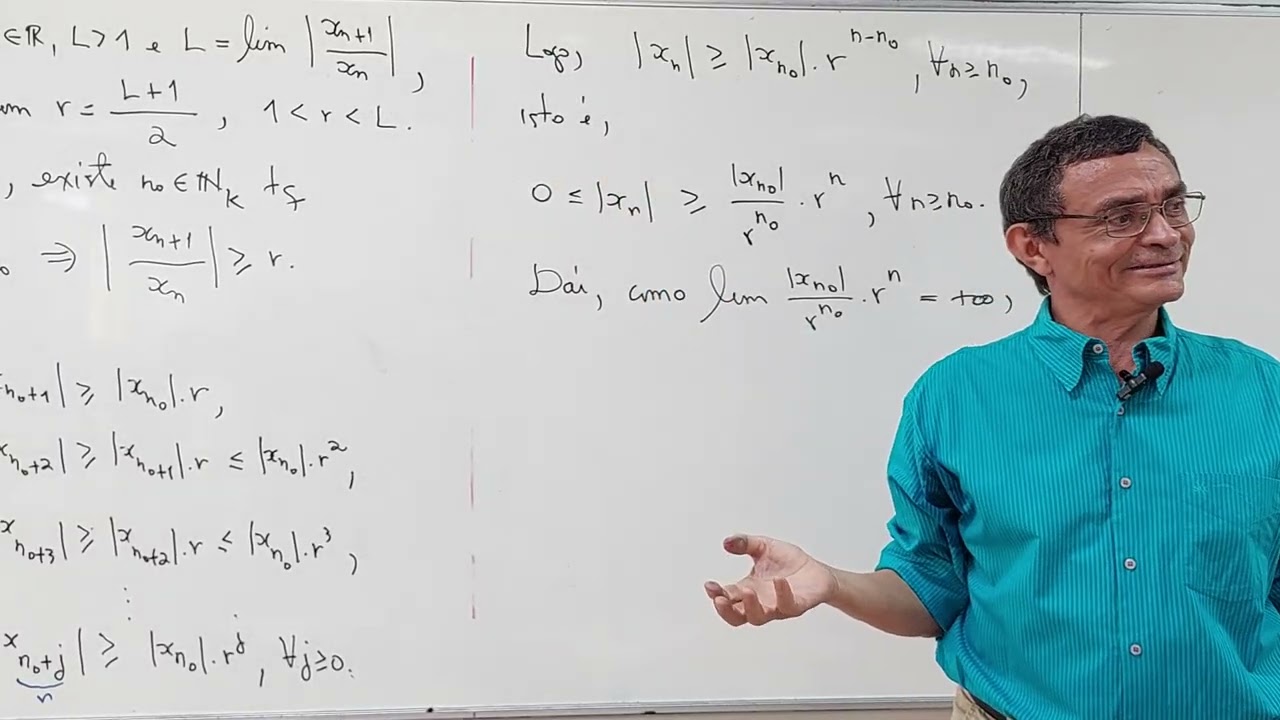 ∈ ℝ, L > 1 e L = lim |x_{n+1}/x_n|,
r = (L+1)/2, 1 < r < L.
, existe n_0 ∈ ℕ_k tq
⇒ |x_{n+1}/x_n| ≥ r.
x_{n_0+1}| ≥ |x_{n_0}|·r,
x_{n_0+2}| ≥ |x_{n_0+1}|·r ≤ |x_{n_0}|·r^2,
x_{n_0+3}| ≥ |x_{n_0+2}|·r ≤ |x_{n_0}|·r^3,
⋮
x_{n_0+j}| ≥ |x_{n_0}|·r^j, ∀j ≥ 0.
n
Logo, |x_n| ≥ |x_{n_0}|·r^{n-n_0}, ∀n ≥ n_0,
isto é,
0 ≤ |x_n| ≥ |x_{n_0}|/r^{n_0} · r^n, ∀n ≥ n_0.
Daí, como lim |x_{n_0}|/r^{n_0} · r^n = +∞,